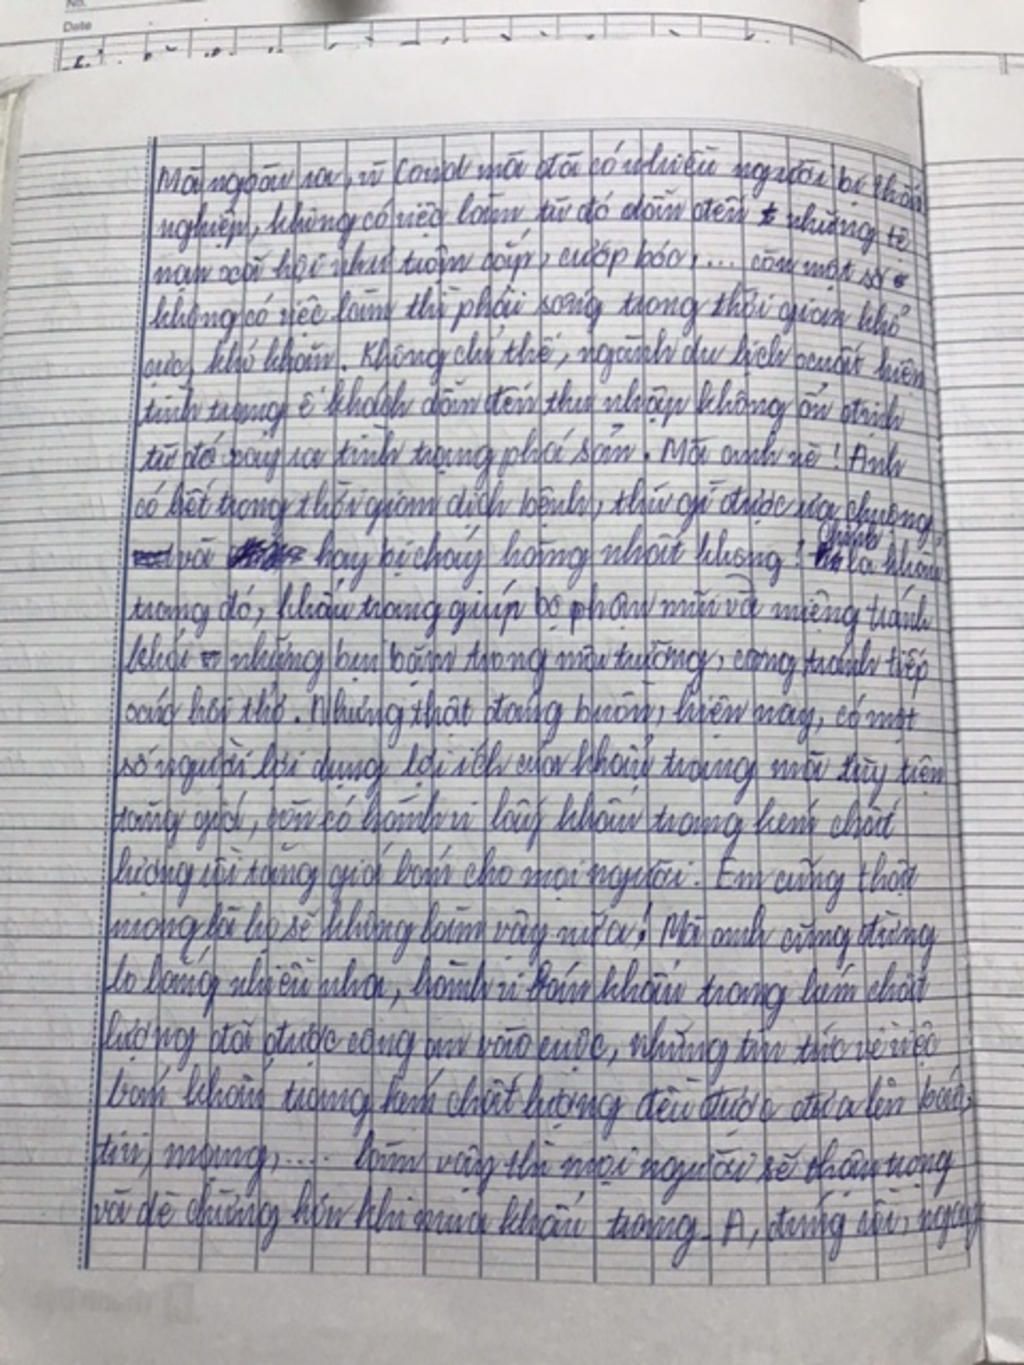 No.
Date
Mà ngoài ra, vì Covid mà đã có nhiều người bị thất
nghiệp, không có việc làm từ đó dẫn đến những tệ
nạn xã hội như trộm cắp, cướp bóc,... còn một số
không có việc làm thì phải sống trong thời gian khổ
cực, khó khăn. Không chỉ thế, ngành du lịch xuất hiện
tình trạng ế khách dẫn đến thu nhập không ổn định
từ đó xảy ra tình trạng phá sản. Mà anh nè! Anh
có biết trong thời gian dịch bệnh, thứ gì được ưa chuộng
và hay bị cháy hàng nhất không! Chính là khẩu
trang đó, khẩu trang giúp bộ phận mũi và miệng tránh
khỏi những bụi bặm trong môi trường, cũng tránh tiếp
xúc hơi thở. Nhưng thật đáng buồn, hiện nay, có một
số người lợi dụng lợi ích của khẩu trang mà tùy tiện
tăng giá, còn có hành vi lấy khẩu trang kém chất
lượng rồi tăng giá bán cho mọi người. Em cũng thật
mong là họ sẽ không làm vậy nữa! Mà anh cũng đừng
lo lắng nhiều nha, hành vi bán khẩu trang kém chất
lượng đã được công an vào cuộc, những tin tức về việc
bán khẩu trang kém chất lượng đều được đưa lên báo,
tivi, mạng,.... làm vậy thì mọi người sẽ thận trọng
và dè chừng hơn khi mua khẩu trang. A, đúng rồi, ngay